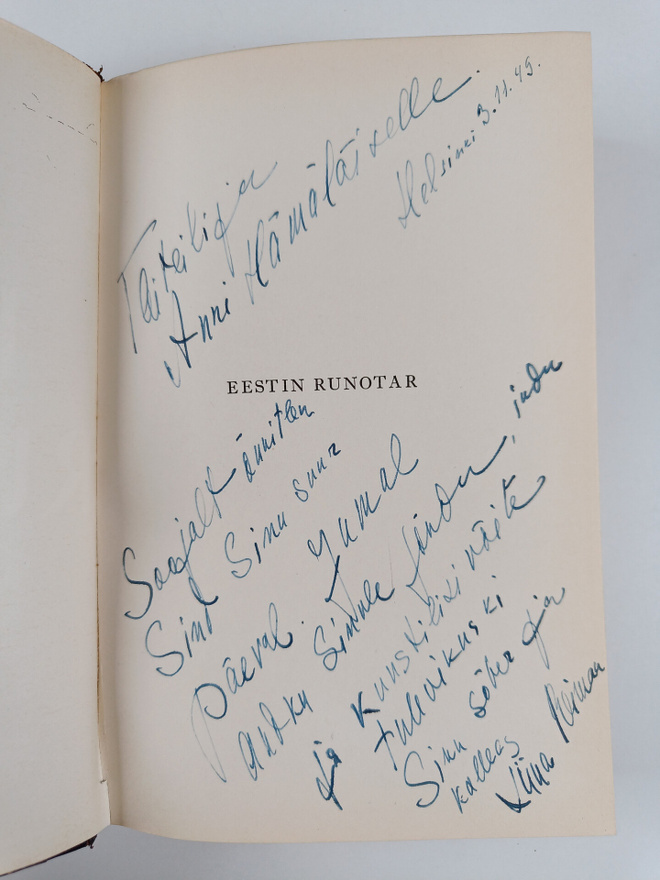 Taiteilija
Anni Hämäläiselle.
Helsinki 3.11.45.
EESTIN RUNOTAR
Soojalt õnnitlen
Sind Sinu suur
päeval. Jumal
andku Sinule jõudu, indu
ja kunstilisi näite
tulevikuski
Sinu sõber ja
kolleeg
Liina Reiman